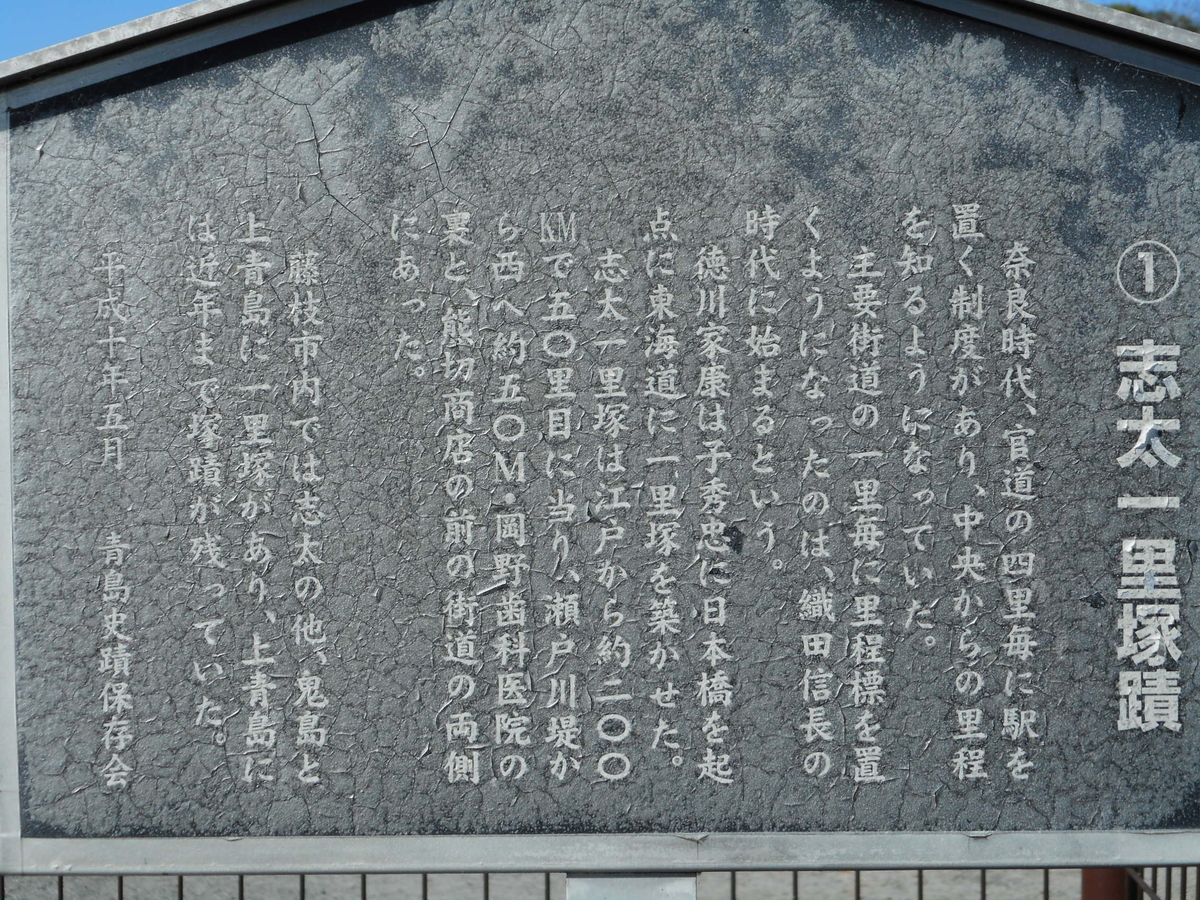 ① 志太一里塚蹟
奈良時代、官道の四里毎に駅を
置く制度があり、中央からの里程
を知るようになっていた。
主要街道の一里毎に里程標を置
くようになったのは、織田信長の
時代に始まるという。
徳川家康は子秀忠に日本橋を起
点に東海道に一里塚を築かせた。
志太一里塚は江戸から約二〇〇
KMで五〇里目に当り、瀬戸川堤か
ら西へ約五〇M・岡野歯科医院の
裏と、熊切商店の前の街道の両側
にあった。
藤枝市内では志太の他、鬼島と
上青島に一里塚があり、上青島に
は近年まで塚蹟が残っていた。
平成十年五月 青島史蹟保存会